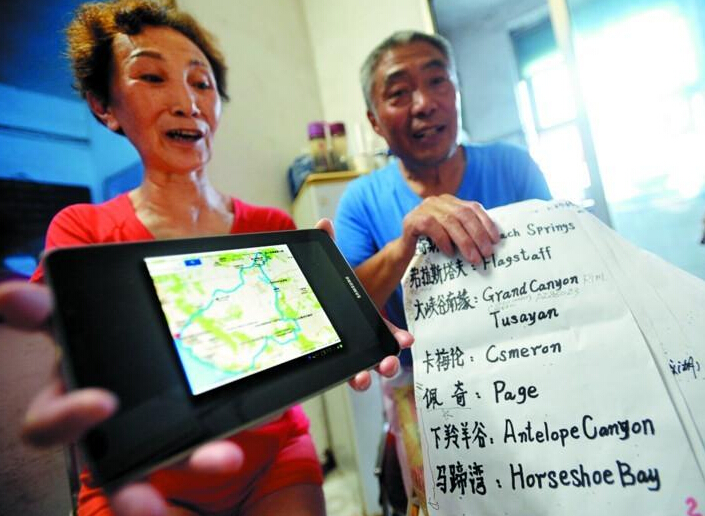 SAMSUNG
Springs
弗拉斯塔夫：Flagstaff
大峡谷南缘：Grand Canyon Rim
Tusayan
卡梅伦：Csmeron
佩奇：Page
下羚羊谷：Antelope Canyon
马蹄湾：Horseshoe Bay
2